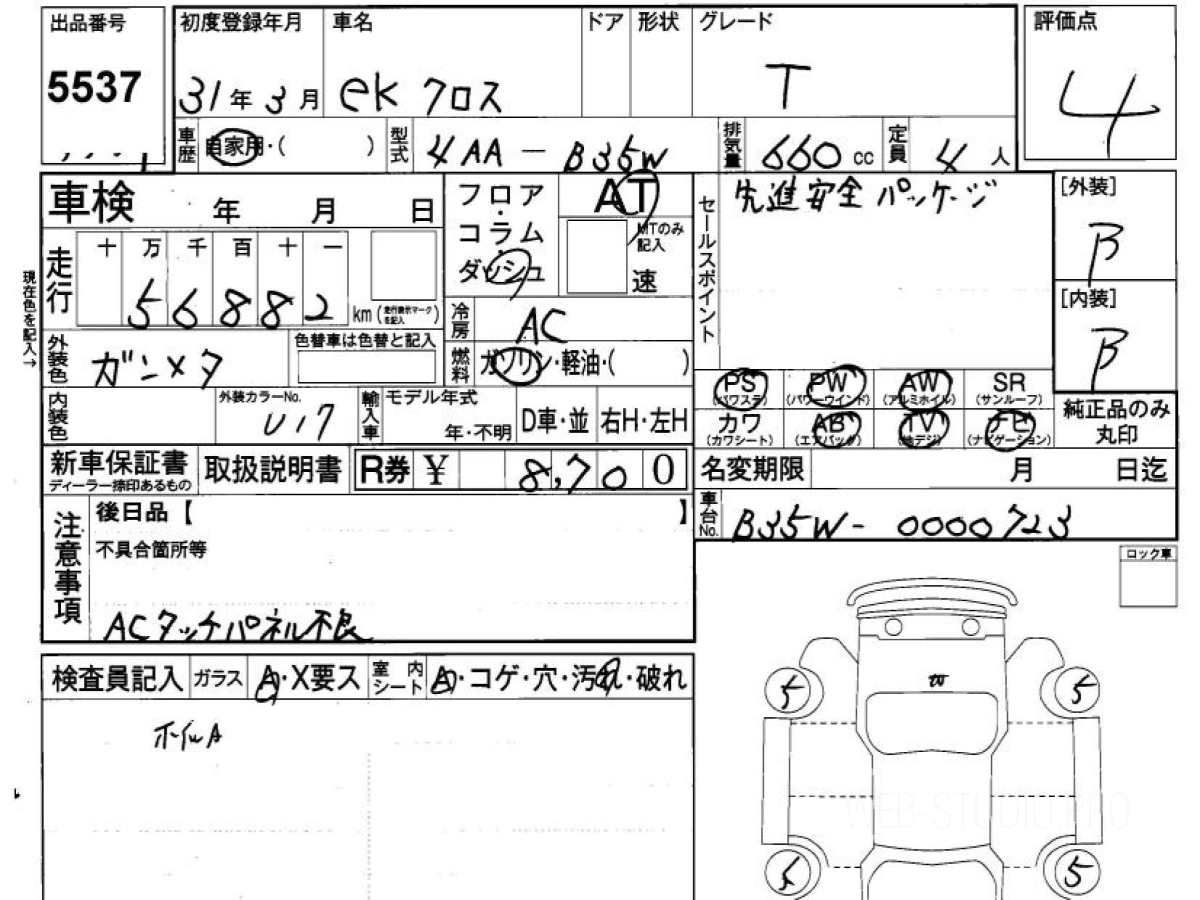 出品番号 初度登録年月 車名 ドア 形状 グレード 評価点
5537 31年3月 ekクロス T 4
車歴 自家用・( ) 型式 4AA-B35W 排気量 660cc 定員 4人
車検 年 月 日 フロア・コラム・ダッシュ AT MTのみ記入 速
セールスポイント 先進安全パッケージ
[外装] B
[内装] B
現在色を記入→
走行 十 万 千 百 十 一
56882 km (走行表示マークを記入)
冷房 AC
外装色 ガンメタ 色替車は色替と記入 燃料 ガソリン・軽油・( )
PS (パワステ) PW (パワーウインド) AW (アルミホイル) SR (サンルーフ)
カワ (カワシート) AB (エアバック) TV (地デジ) ナビ (ナビゲーション)
純正品のみ丸印
内装色 外装カラーNo. U17 輸入車 モデル年式 年・不明 D車・並 右H・左H
新車保証書 ディーラー捺印あるもの 取扱説明書 R券 ¥ 8,700
名変期限 月 日迄
車台No. B35W-0000723
注意事項 後日品【 】
不具合箇所等
ACタッチパネル不良
ロック車
検査員記入 ガラス A・X要ス 室内シート A・コゲ・穴・汚れ・破れ
ホイルA
5 5
WEB-STUDIO.PRO
5 5